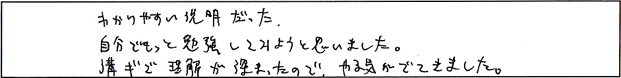 わかりやすい説明だった.
自分でもっと勉強してみようと思いました。
講ギで理解が深まったので、やる気がでてきました。